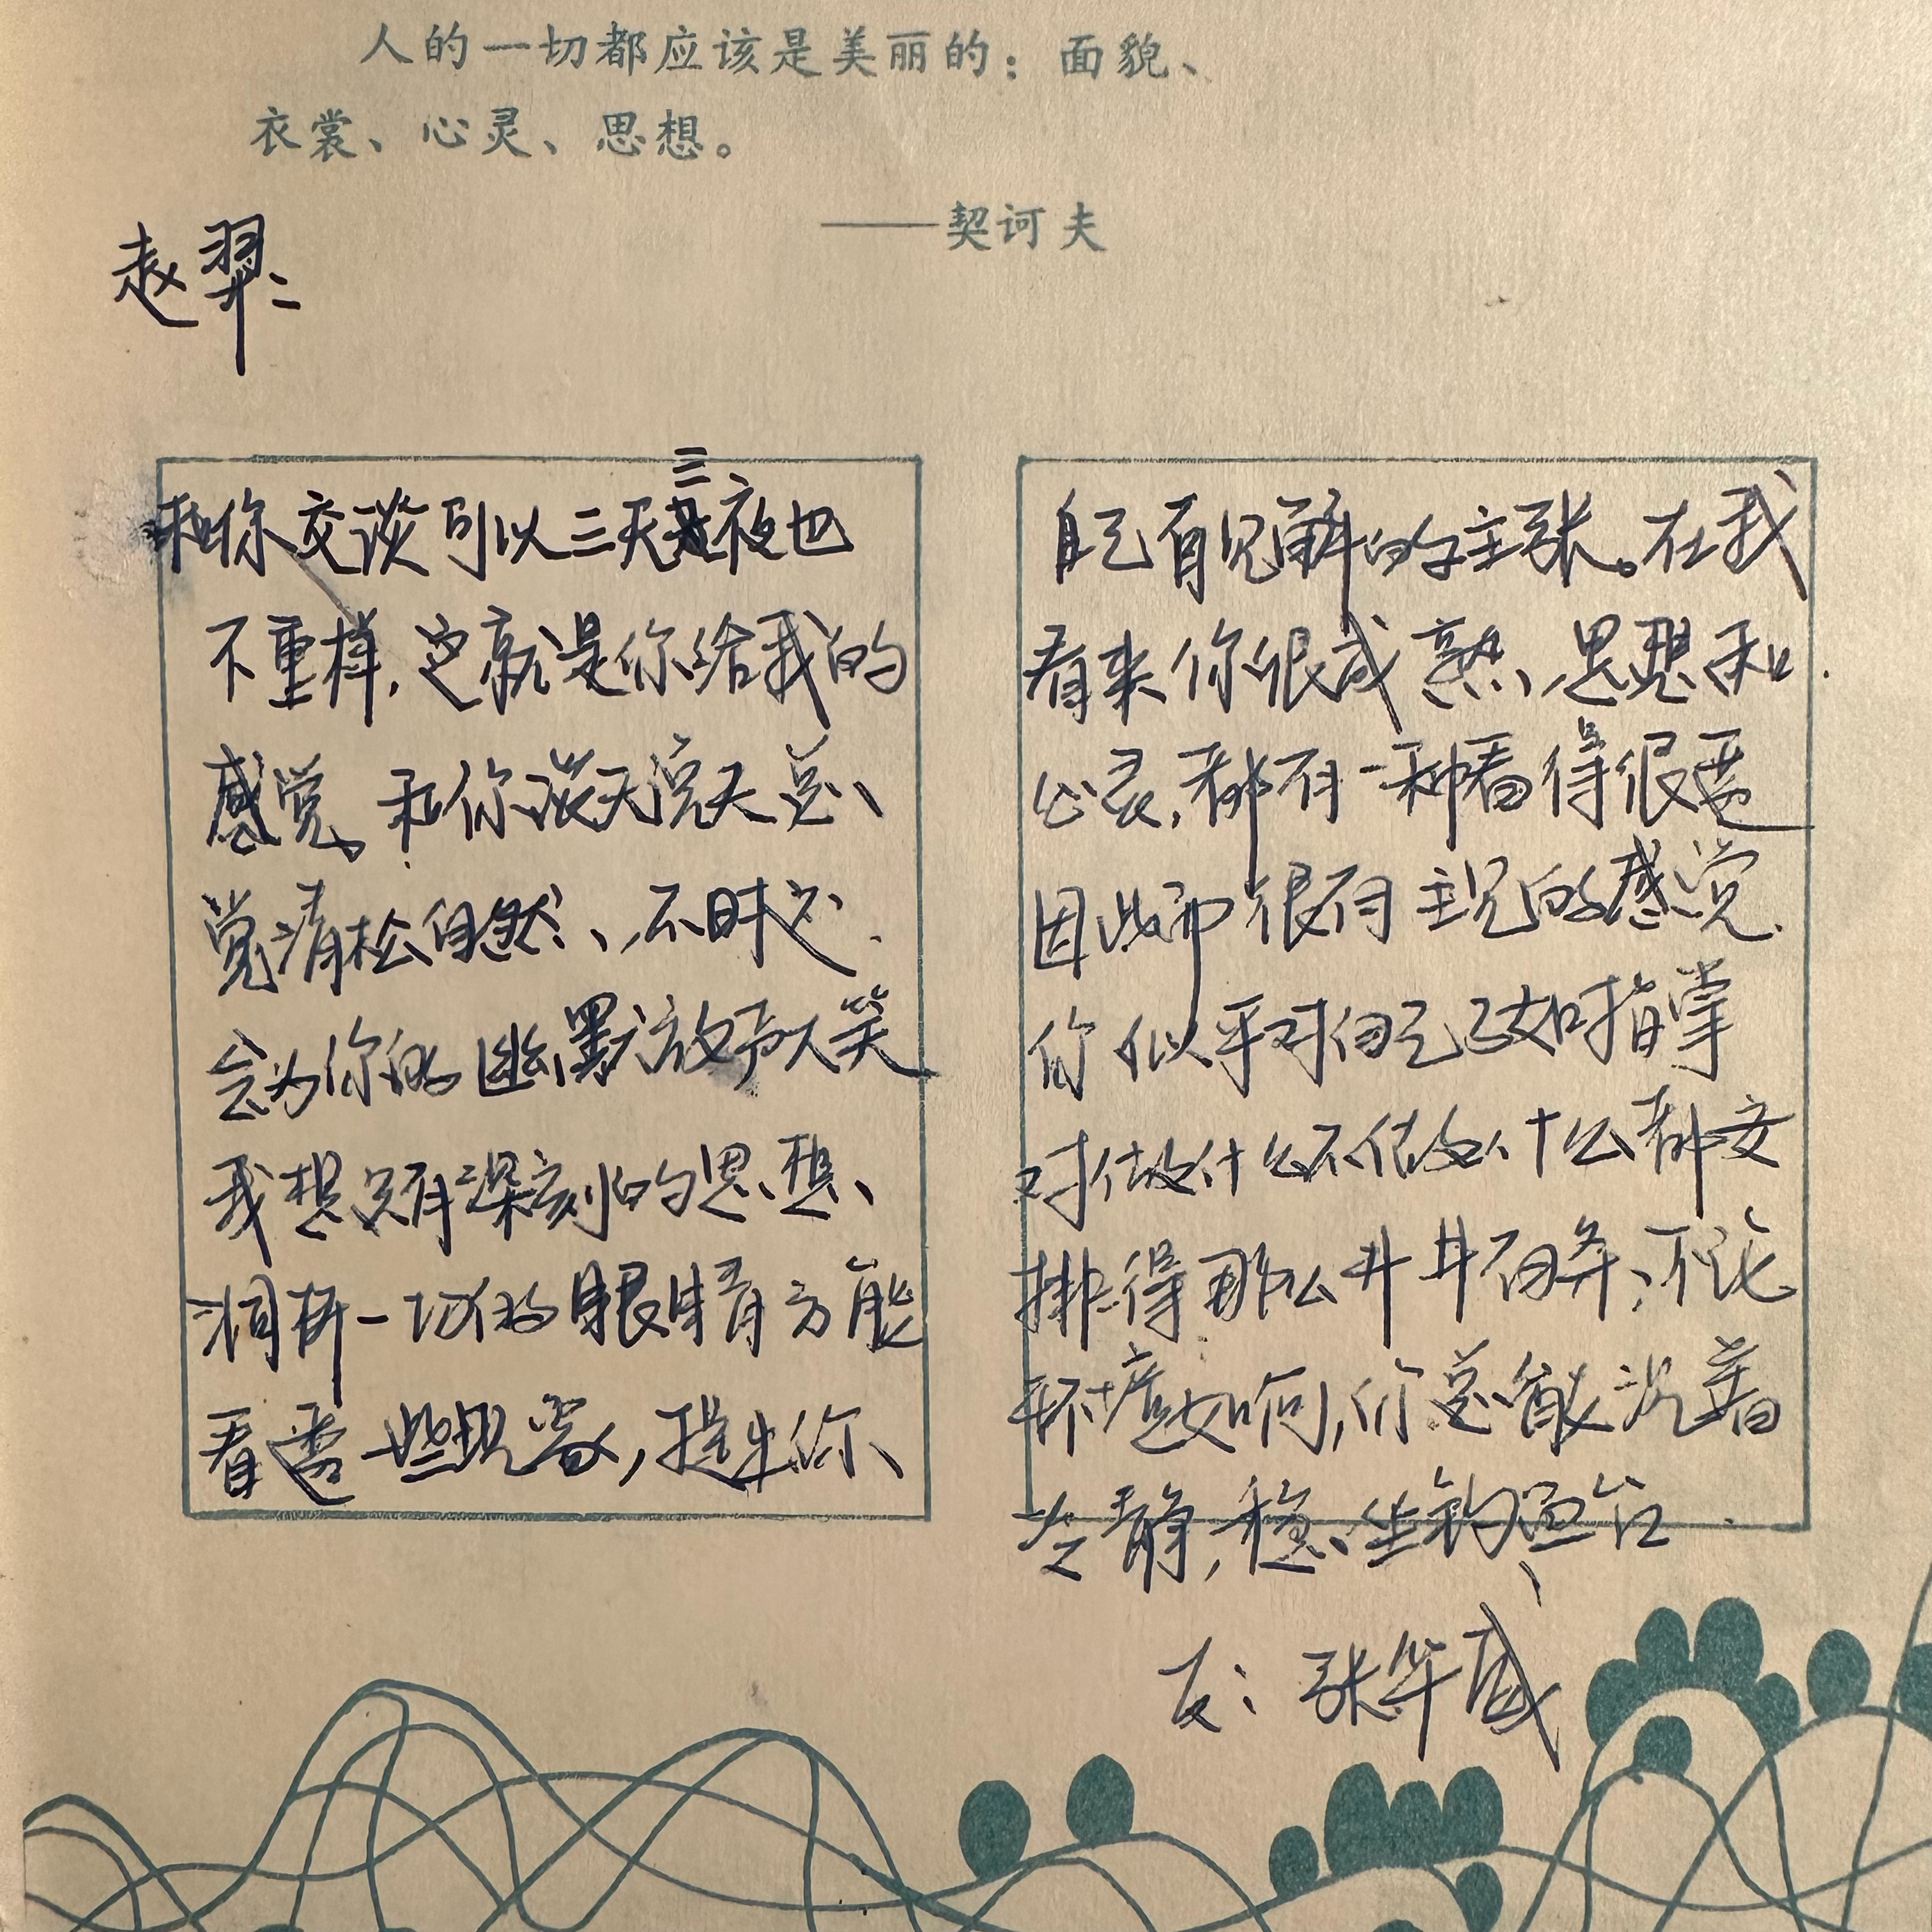 人的一切都应该是美丽的：面貌、
衣裳、心灵、思想。
——契诃夫
赵翚：
和你交谈可以三天三夜也
不重样，这就是你给我的
感觉。和你谈天说天总
觉清松自然，不时也
会为你的幽默放声大笑
我想只有深刻的思想、
洞析一切的眼睛方能
看透一些现象，提出你
自己有见解的主张。在我
看来你很成熟，思想和
心灵，都有一种看得很透
因此而很有主见的感觉.
你似乎对自己了如指掌
对做什么不做什么都安
排得那么井井有条，不论
环境如何，你总能沉着
冷静，稳坐钓鱼台
友：张华威